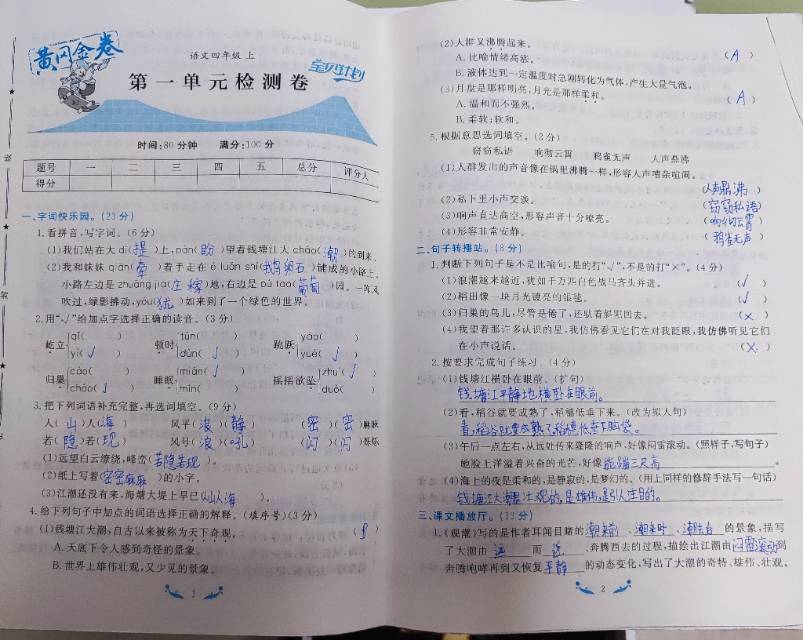 黄冈金卷
语文四年级 上
第一单元检测卷
时间:80分钟 满分:100分
题号 一 二 三 四 五 总分 评分人
得分
一、字词快乐园。(23分)
1.看拼音,写字词。(6分)
(1)我们站在大dī(堤)上,pàn(盼)望着钱塘江大cháo(潮)的到来。
(2)我和妹妹qiān(牵)着手走在é luǎn shí(鹅卵石)铺成的小路上,
小路左边是zhuāng jia(庄稼)地,右边是pú tao(葡萄)园。一阵风
吹过,绿影拂动,yóu(犹)如来到了一个绿色的世界。
2.用“√”给加点字选择正确的读音。(3分)
屹立 qǐ( ) yì(√) 顿时 tún( ) dùn(√) 跳跃 yào( ) yuè(√)
归巢 cáo( ) cháo(√) 睡眠 mián(√) mín( ) 摇摇欲坠 zhuì(√) duò( )
3.把下列词语补充完整,再选词填空。(9分)
人(山)人(海) 风平(浪)(静) (密)(密)麻麻
若(隐)若(现) 风号(浪)(吼) (闪)(闪)烁烁
(1)远望白云缭绕,峰峦(若隐若现)。
(2)纸上写着(密密麻麻)的小字。
(3)江潮还没有来,海塘大堤上早已(人山人海)。
4.给下列句子中加点的词语选择正确的解释。(填序号)(3分)
(1)钱塘江大潮,自古以来被称为天下奇观。
A.天底下令人感到奇怪的景象。
B.世界上雄伟壮观,又少见的景象。
(2)人群又沸腾起来。 (A)
A.比喻情绪高涨。
B.液体达到一定温度时急剧转化为气体,产生大量气泡。
(3)月盘是那样明亮,月光是那样柔和。 (A)
A.温和而不强烈。
B.柔软;软和。
5.根据意思选词填空。(2分)
窃窃私语 响彻云霄 鸦雀无声 人声鼎沸
(1)人群发出的声音像在锅里沸腾一样,形容人声嘈杂喧闹。
(人声鼎沸)
(2)私下里小声交谈。 (窃窃私语)
(3)响声直达高空,形容声音十分嘹亮。 (响彻云霄)
(4)形容非常安静。 (鸦雀无声)
二、句子转播站。(8分)
1.判断下列句子是不是比喻句,是的打“√”,不是的打“×”。(4分)
(1)浪潮越来越近,犹如千万匹白色战马齐头并进。 (√)
(2)稻田像一块月光镀亮的银毯。 (√)
(3)归巢的鸟儿,尽管是倦了,还驮着斜阳回去。 (×)
(4)我望着那许多认识的星,我仿佛看见它们在对我眨眼,我仿佛听见它们
在小声说话。 (×)
2.按要求完成句子练习。(4分)
(1)钱塘江横卧在眼前。(扩句)
钱塘江平静地横卧在眼前。
(2)看,稻谷就要成熟了,稻穗低垂下来。(改为拟人句)
看,稻谷就要成熟了,稻穗低垂下脑袋。
(3)午后一点左右,从远处传来隆隆的响声,好像闷雷滚动。(照样子,写句子)
她脸上洋溢着兴奋的光芒,好像能蹦三尺高
(4)海上的夜是柔和的,是静寂的,是梦幻的。(用上同样的修辞手法写一句话)
钱塘江大潮是壮观的,是雄伟,是引人注目的。
三、课文播放厅。(13分)
1.《观潮》写的是作者耳闻目睹的潮来前、潮来时、潮去后的景象,描写
了大潮由远而近、奔腾西去的过程,描绘出江潮由闷雷滚动到
奔腾咆哮再到又恢复平静的动态变化,写出了大潮的奇特、雄伟、壮观。
2